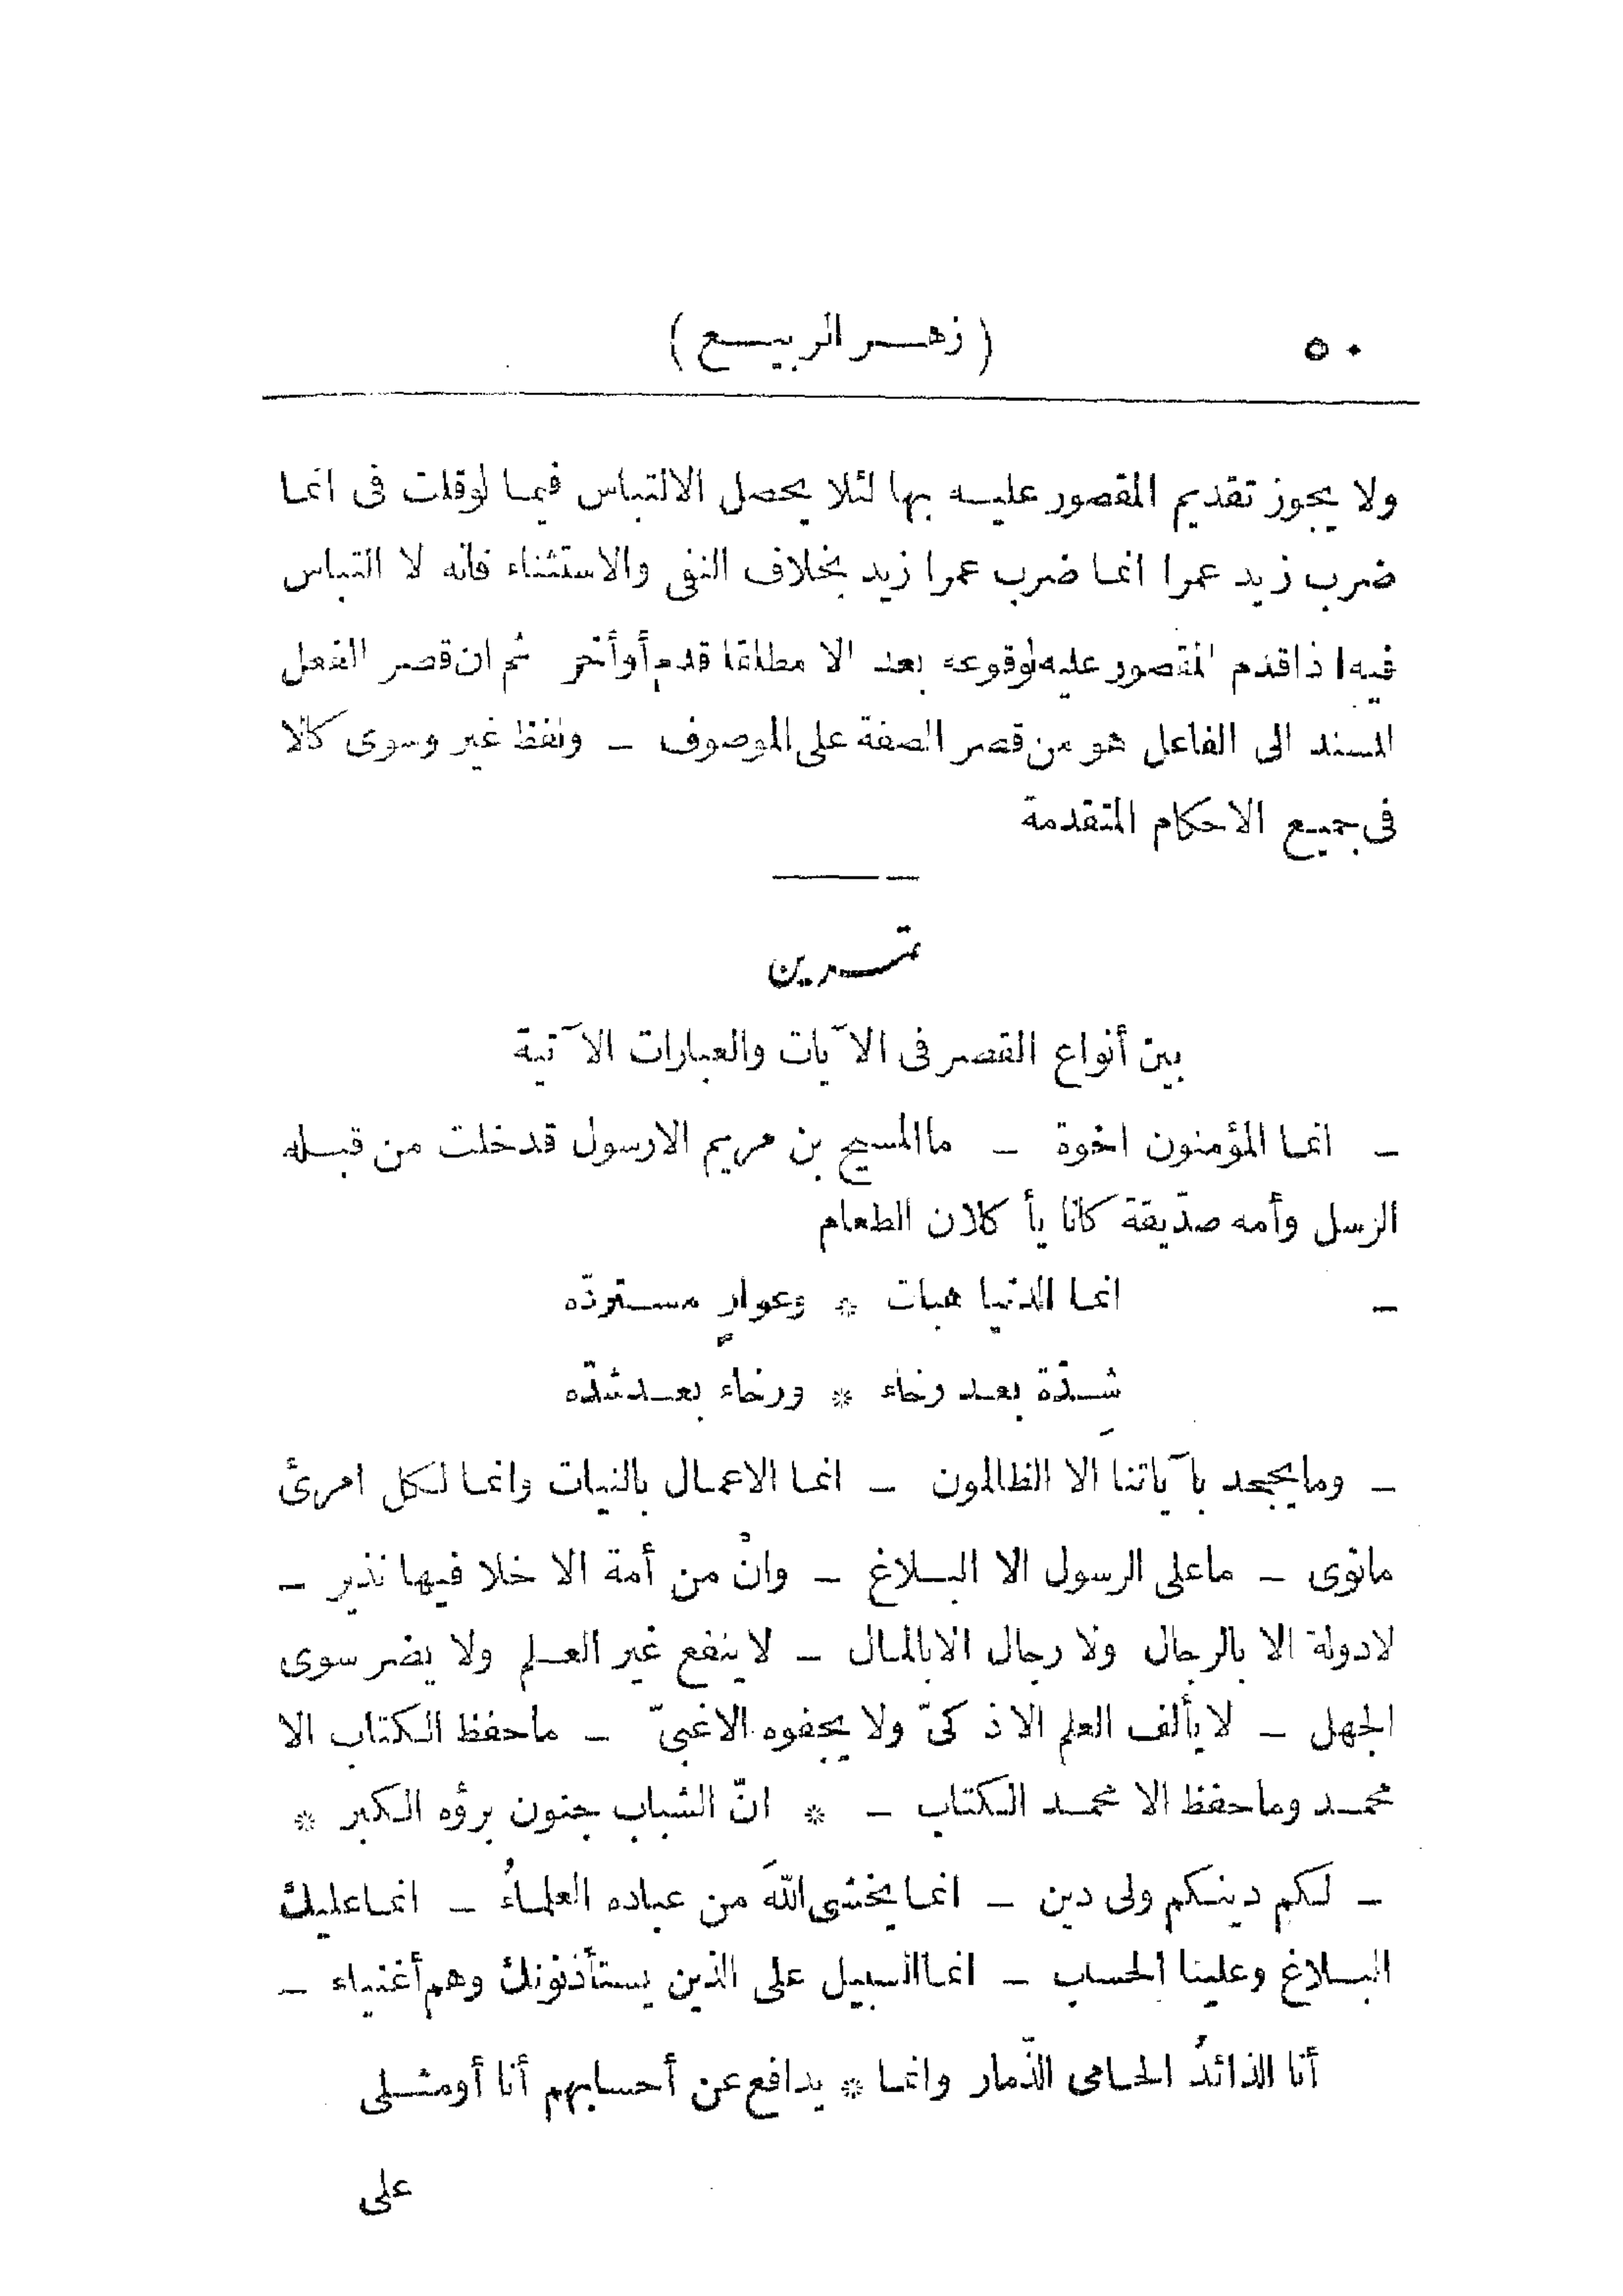 ٥٠ (زهر الربيع)
ولا يجوز تقديم المقصور عليه بها لئلا يحصل الالتباس فيما لوقلت فى انما
ضرب زيد عمرا انما ضرب عمرا زيد بخلاف النفى والاستثناء فانه لا التباس
فيه اذا قدم المقصور عليه لوقوعه بعد الا مطلقا قدم أو أخر ثم ان قصر الفعل
المسند الى الفاعل هو من قصر الصفة على الموصوف – ولفظ غير وسوى كالا
فى جميع الاحكام المتقدمة
تمرين
بين أنواع القصر فى الآيات والعبارات الآتية
– انما المؤمنون اخوة – ما المسيح بن مريم الا رسول قد خلت من قبله
الرسل وأمه صدّيقة كانا يأكلان الطعام
– انما الدنيا هبات * وعوارٍ مستردّه
شِدّة بعد رخاء * ورخاء بعد شدّه
– وما يجحد بآياتنا الا الظالمون – انما الاعمال بالنيات وانما لكل امرئ
مانوى – ماعلى الرسول الا البلاغ – وانْ من أمة الا خلا فيها نذير –
لادولة الا بالرجال ولا رجال الا بالمال – لا ينفع غير العلم ولا يضر سوى
الجهل – لا يألف العلم الا ذكىّ ولا يجفوه الا غبىّ – ماحفظ الكتاب الا
محمد وماحفظ الا محمد الكتاب – * انّ الشباب جنون برؤه الكبر *
– لكم دينكم ولى دين – انما يخشى اللهَ من عباده العلماءُ – انما عليك
البلاغ وعلينا الحساب – انما السبيل على الذين يستأذنونك وهم أغنياء –
أنا الذائدُ الحامى الذّمار وانما * يدافع عن أحسابهم أنا أومثلى
على